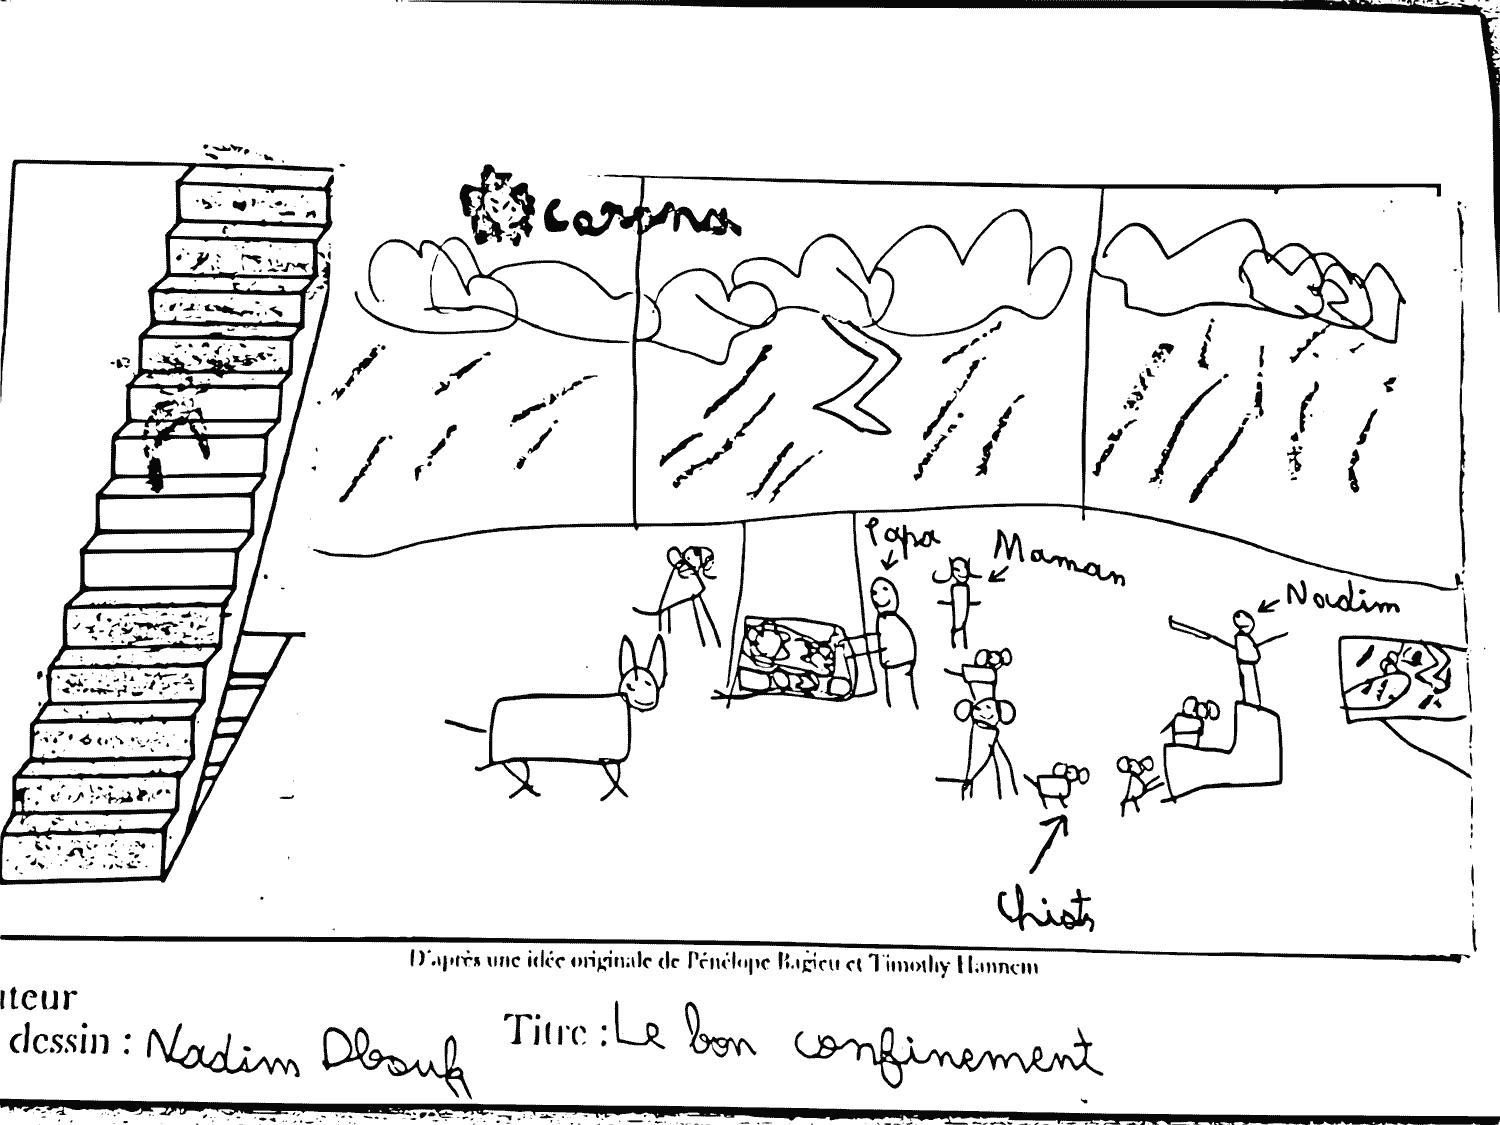 corona
Papa
Maman
Nadim
Chiots
D'après une idée originale de Pénélope Bagieu et Timothy Hannem
uteur
dessin : Nadim Dbouk
Titre : Le bon confinement